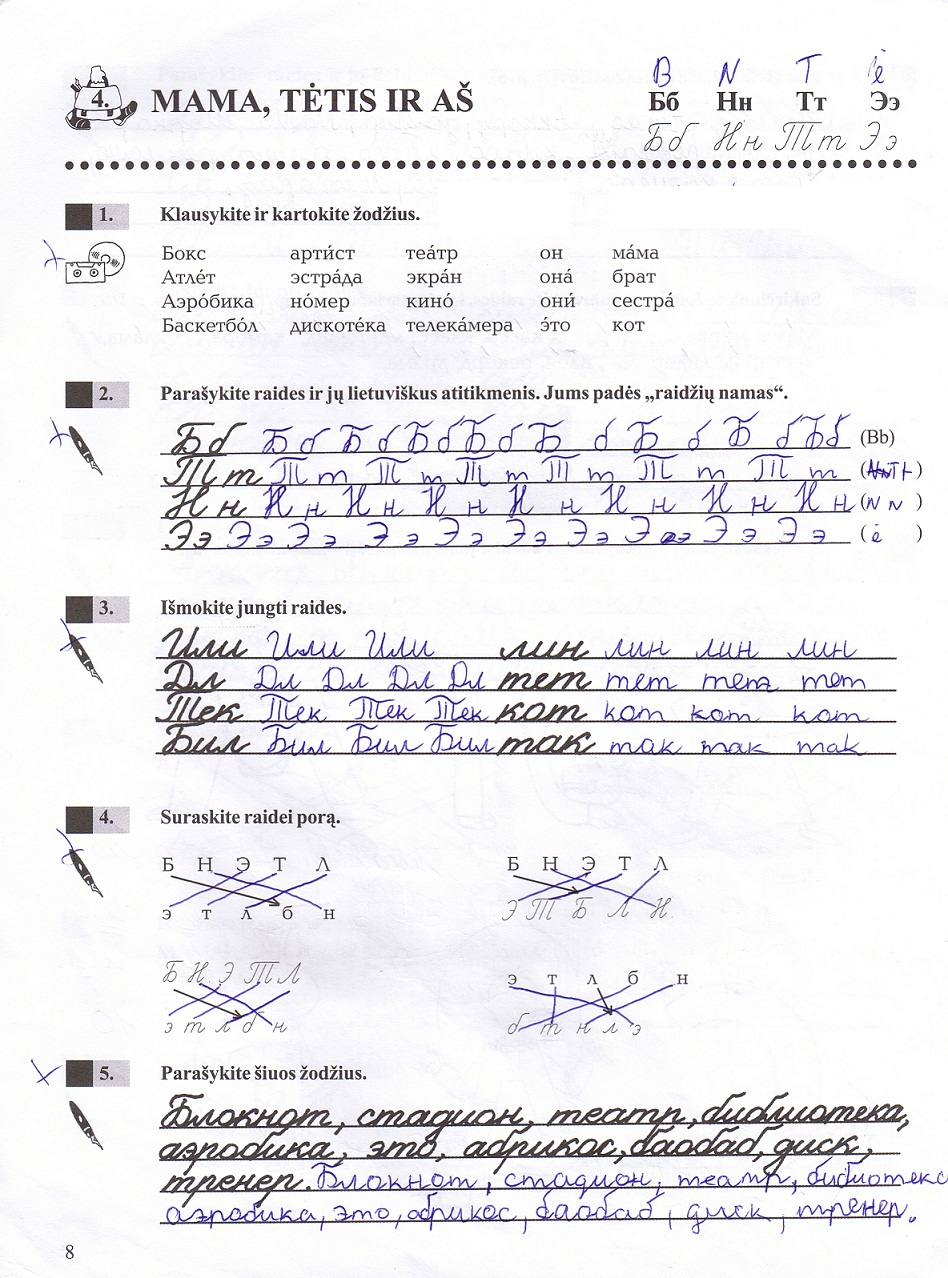 B N T ė
4. MAMA, TĖTIS IR AŠ Бб Нн Тт Ээ
Бб Нн Тт Ээ
1. Klausykite ir kartokite žodžius.
Бокс арти́ст теа́тр он ма́ма
Атле́т эстра́да экра́н она́ брат
Аэро́бика но́мер кино́ они́ сестра́
Баскетбо́л дискоте́ка телека́мера э́то кот
2. Parašykite raides ir jų lietuviškus atitikmenis. Jums padės „raidžių namas“.
Бб Б б Б б Б б Б б Б б Б б Б б Б б (Bb)
Тт Т т Т т Т т Т т Т т Т т (Tt)
Нн Н н Н н Н н Н н Н н Н н Н н (N n)
Ээ Э э Э э Э э Э э Э э Э э Э э Э э Э э (ė)
3. Išmokite jungti raides.
Или Или Или лин лин лин лин
Дл Дл Дл Дл Дл тет тет тет тет
Тек Тек Тек Тек кот кот кот кот
Бил Бил Бил Бил так так так так
4. Suraskite raidei porą.
Б Н Э Т Л Б Н Э Т Л
э т л б н Э Т Б Л Н
Б Н Э Т Л э т л б н
э т л б н б т н л э
5. Parašykite šiuos žodžius.
Блокнот, стадион, театр, библиотека,
аэробика, это, абрикос, баобаб, диск,
тренер. Блокнот, стадион, театр, библиотека
аэробика, это, абрикос, баобаб, диск, тренер.
8